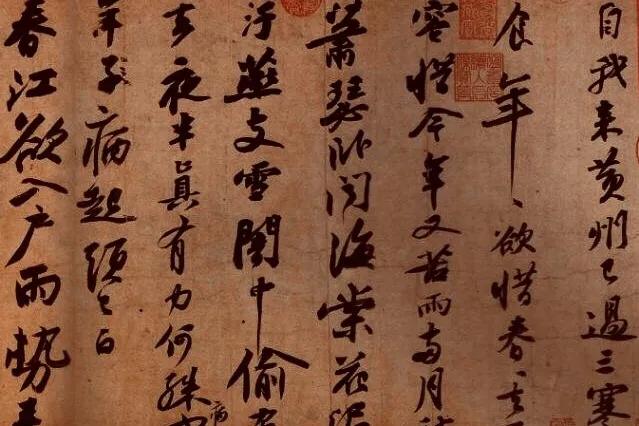 自我来黄州已過三寒
食年〻欲惜春〻去不
容惜今年又苦雨兩月秋
蕭瑟卧聞海棠花泥
汙燕支雪闇中偷負
去夜半真有力何殊病
年子病起頭已白
春江欲入户雨勢来